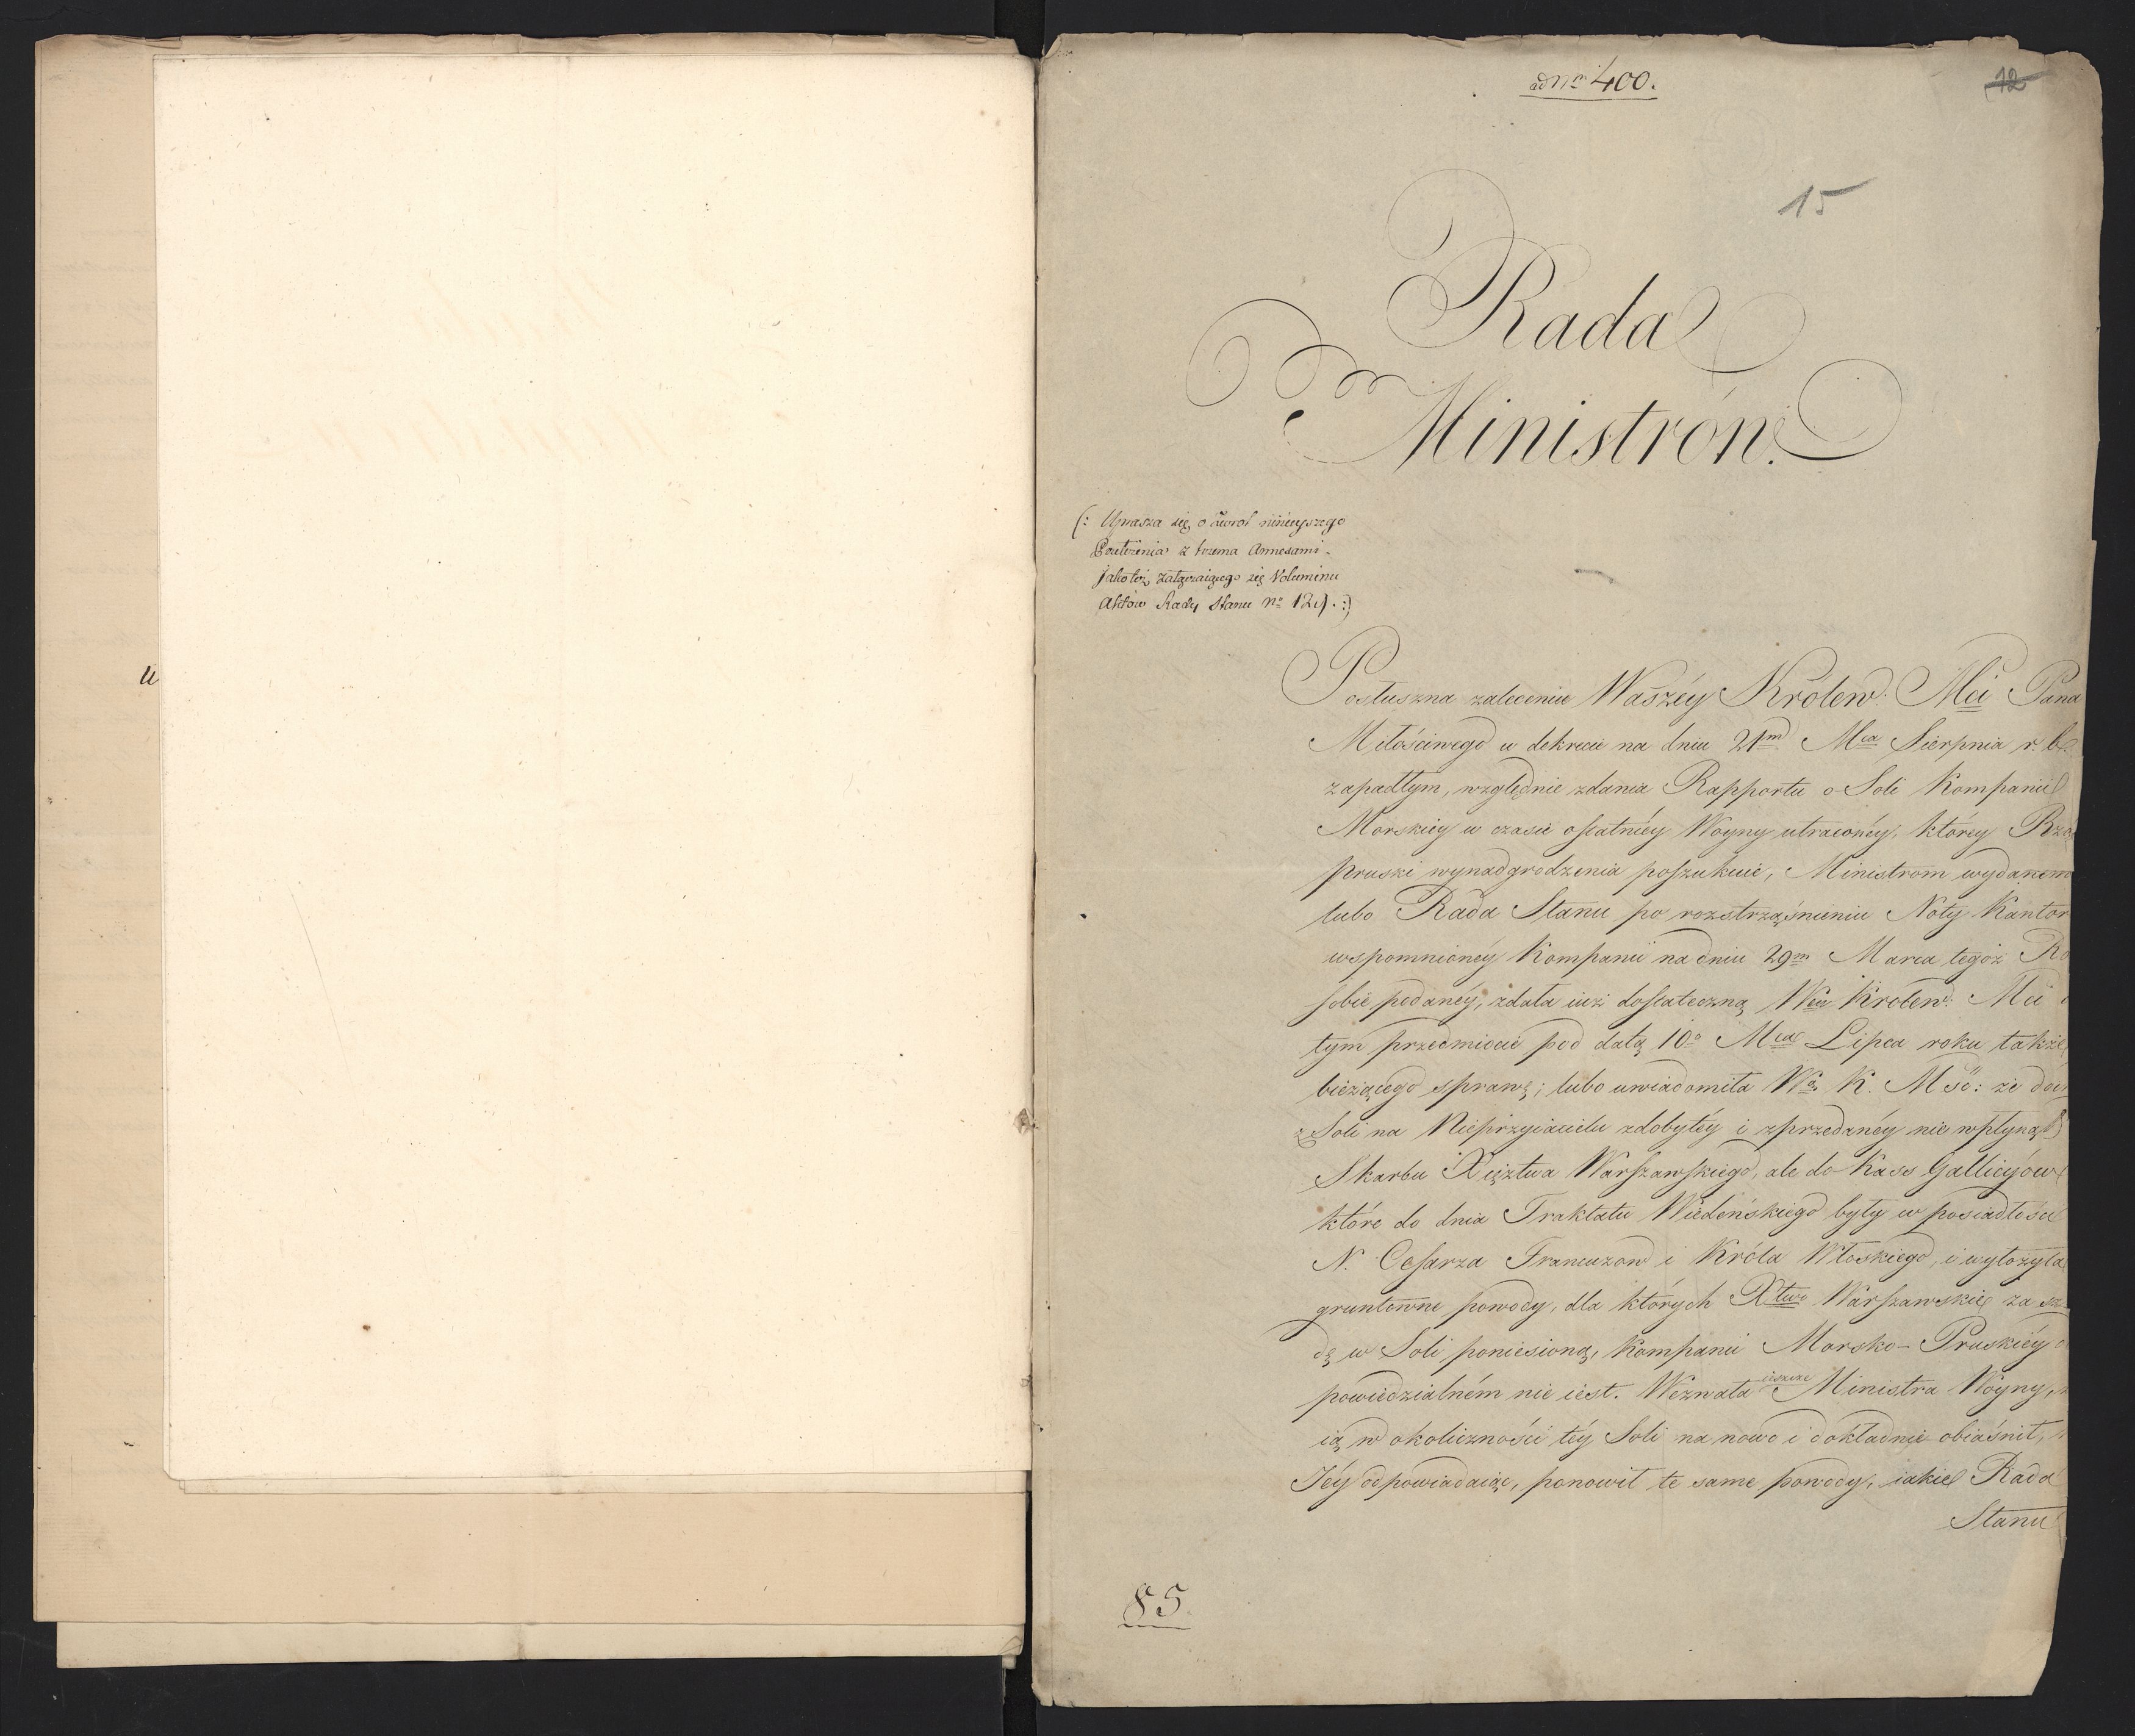 u
ad Nr 400.
12
15
Rada
Ministrów.
(: Uprasza się o zwrot ninieyszego
Przełożenia z trzema Annexami.
Jakoteż załączaiącego się Voluminu
Aktów Rady Stanu No 129. :)
Posłuszna zaleceniu Waszéy Królew: Mci Pana
Miłościwego w dekrecie na dniu 21m Mca Sierpnia r. b.
zapadłym, względnie zdania Rapportu o Soli Kompanii
Morskiey w czasie ostatniéy Woyny utraconéy, którey Rzą
pruski wynadgrodzenia poszukuie, Ministrom wydanem
lubo Rada Stanu po rozstrząśnieniu Noty Kantor
wspomnionéy Kompanii na dniu 29m Marca tegoż Ro
sobie podanéy, zdała iuż dostateczną Wéy Królew: Mci
tym przedmiocie pod datą 10o Mca Lipca roku także
bieżącego sprawę; lubo uwiadomiła Wą K. Mść: że do
z Soli na Nieprzyiacielu zdobytéy i sprzedanéy nie wpłynął
Skarbu Xięztwa Warszawskiego, ale do Kass Gallicyów
które do dnia Traktatu Wiedeńskiego były w posiadłości
N. Cesarza Francuzow i Króla Włoskiego, i wyłożyła
gruntowne powody, dla których Xtwo Warszawskie za szko
dę w Soli poniesioną, Kompanii Morsko-Pruskiéy o
powiedzialném nie iest. Wezwała ieszcze Ministra Woyny,
ią w okoliczności téy Soli na nowo i dokładnie obiaśnił,
Jéy odpowiadaiąc, ponowił te same powody, iakie Rada
Stanu
85.